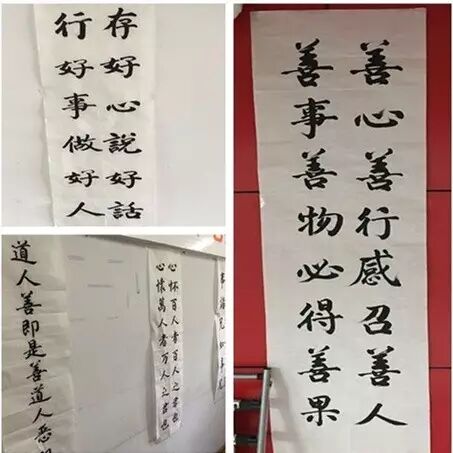 存好心說好話
行好事做好人
善心善行感召善人
善事善物必得善果
道人善即是善道人惡
心怀百人者百人之君也
心懷萬人者万人之君也